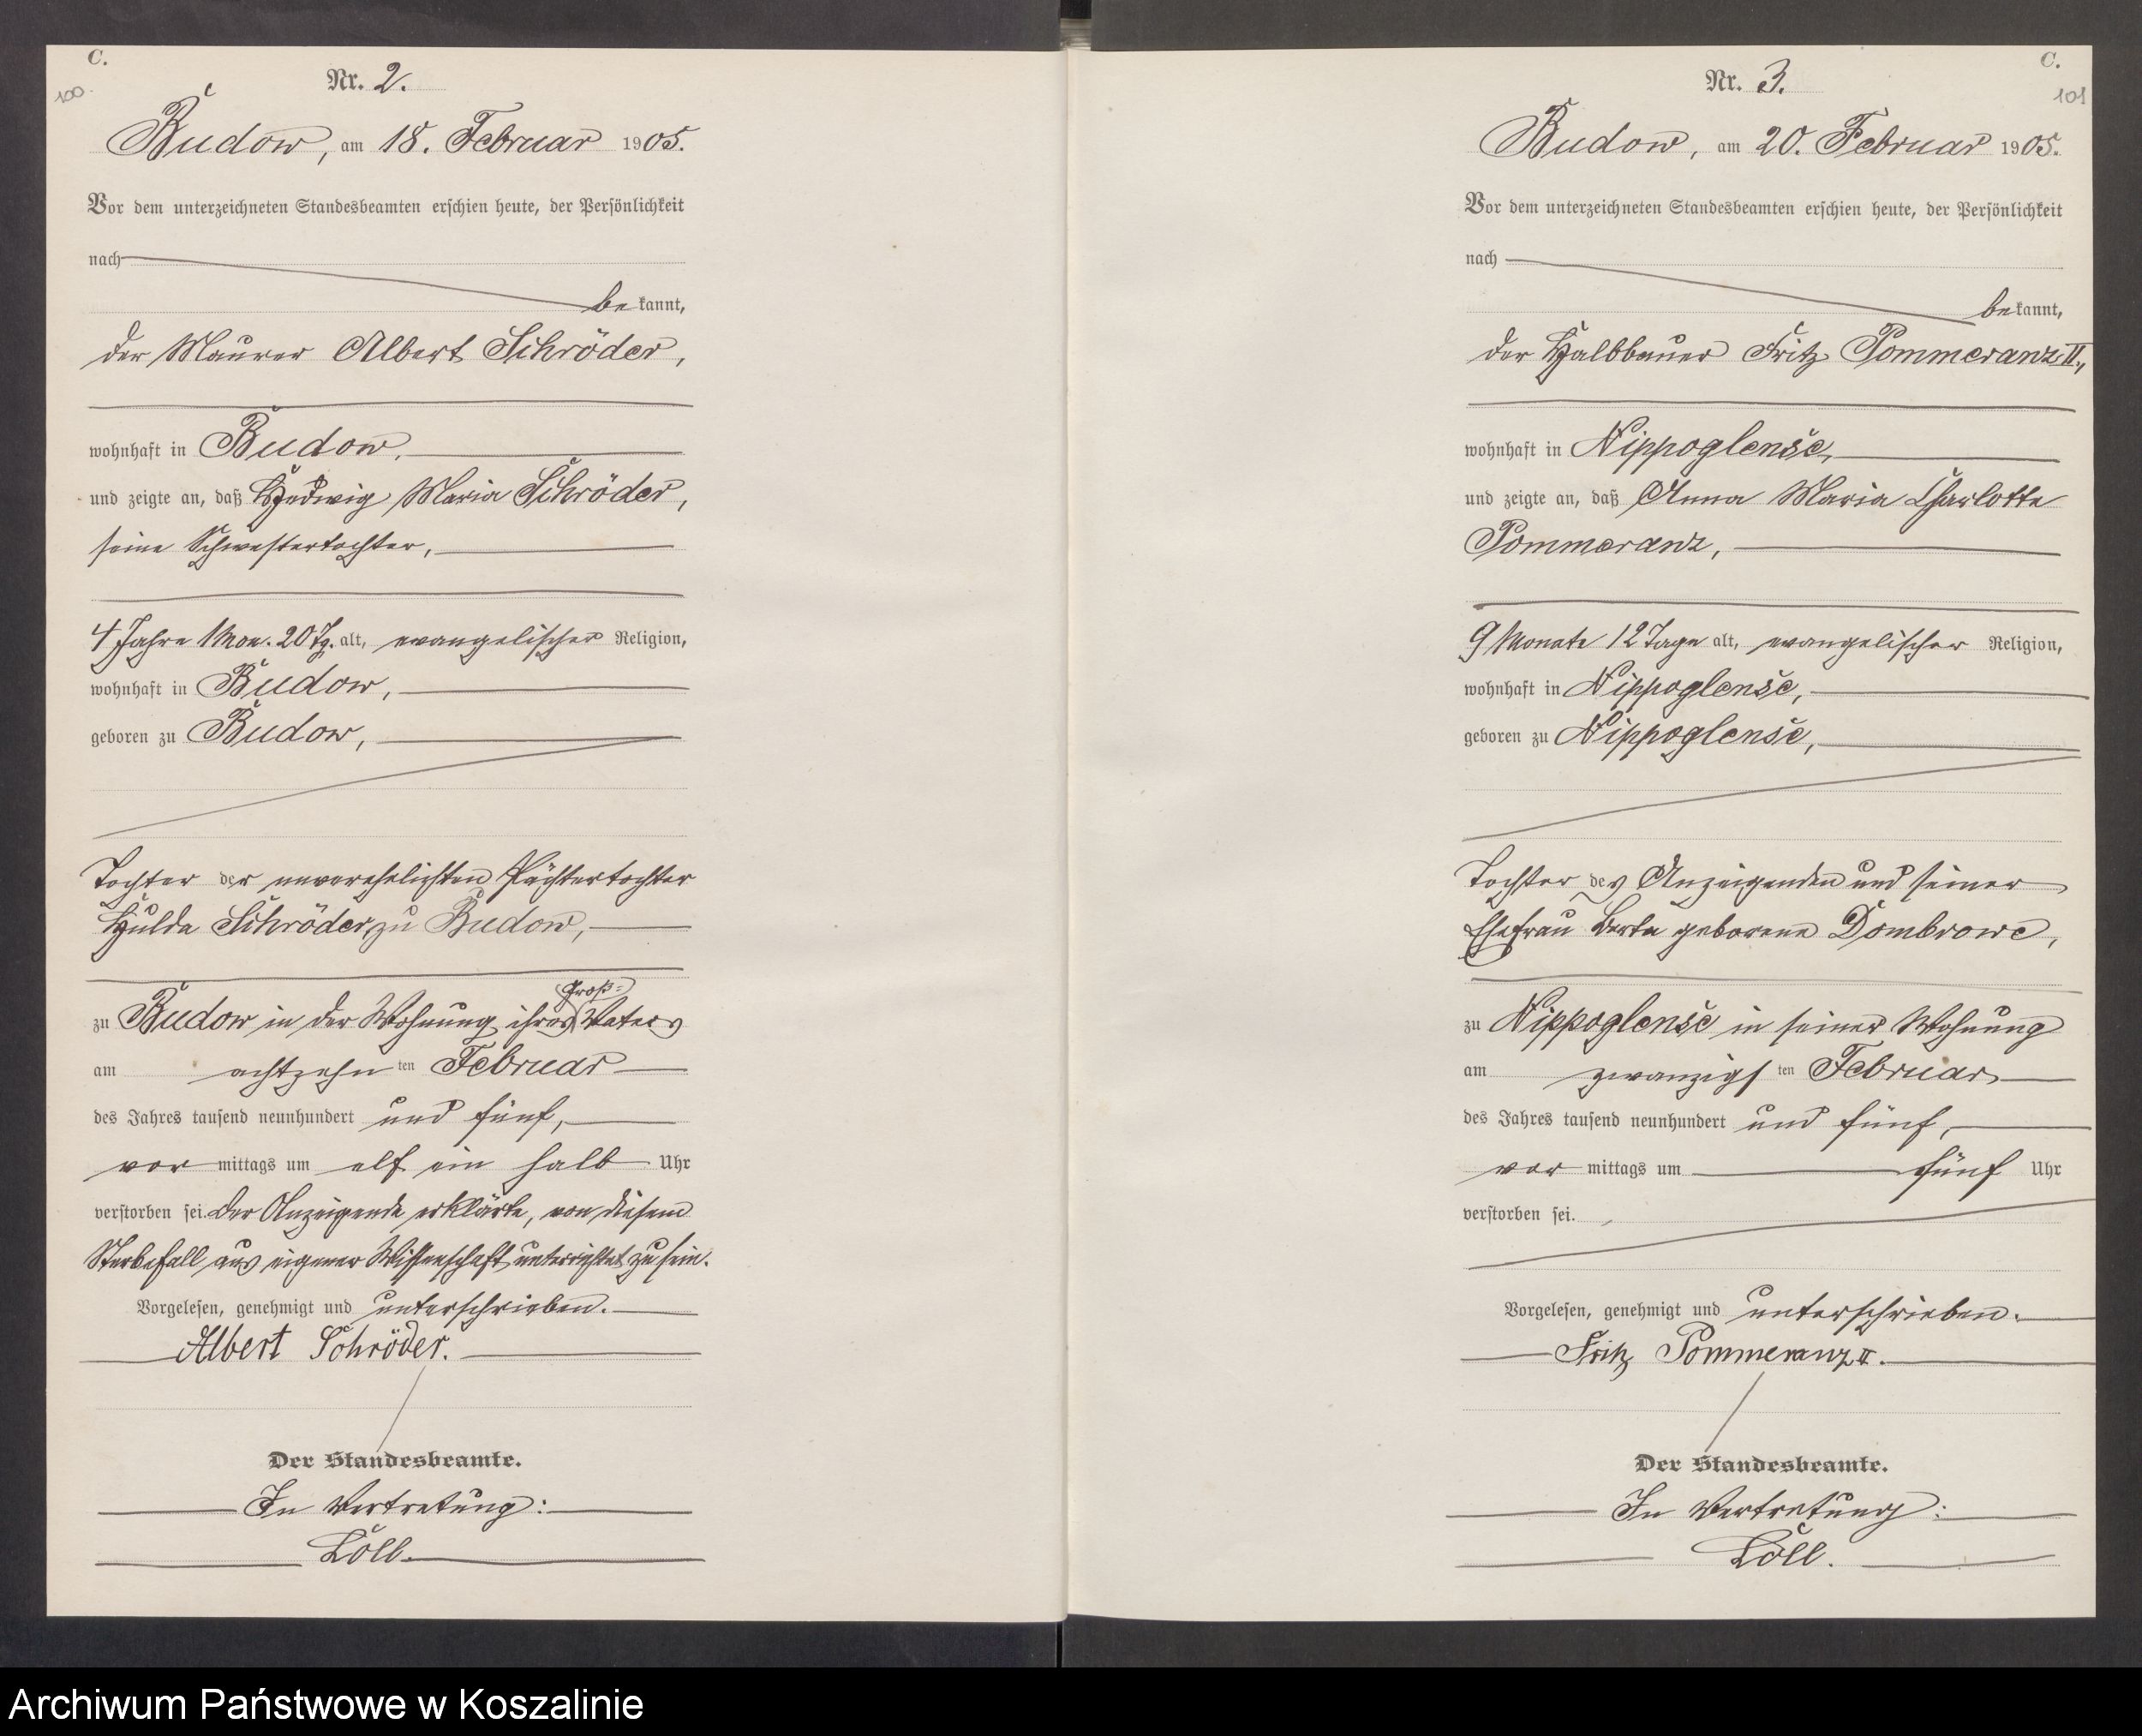 C.
100.
Nr. 2.
Budow, am 18. Februar 1905.
Vor dem unterzeichneten Standesbeamten erschien heute, der Persönlichkeit
nach
bekannt,
der Maurer Albert Schröder,
wohnhaft in Budow,
und zeigte an, daß Hedwig Maria Schröder,
seine Schwestertochter,
4 Jahre 1 Mon. 20 Tg. alt, evangelischer Religion,
wohnhaft in Budow,
geboren zu Budow,
Tochter der unverehelichten Pächtertochter
Hulda Schröder zu Budow,
Groß-
zu Budow in der Wohnung ihres Vaters
am achtzehnten Februar
des Jahres tausend neunhundert und fünf,
vormittags um elf ein halb Uhr
verstorben sei. Der Anzeigende erklärte, von diesem
Sterbefall aus eigener Wissenschaft unterrichtet zu sein.
Vorgelesen, genehmigt und unterschrieben.
Albert Schröder.
Der Standesbeamte.
In Vertretung:
Löll.
C.
101
Nr. 3.
Budow, am 20. Februar 1905.
Vor dem unterzeichneten Standesbeamten erschien heute, der Persönlichkeit
nach
bekannt,
der Halbbauer Fritz Pommeranz II.,
wohnhaft in Nippoglense,
und zeigte an, daß Anna Maria Charlotte
Pommeranz,
9 Monate 12 Tage alt, evangelischer Religion,
wohnhaft in Nippoglense,
geboren zu Nippoglense,
Tochter des Anzeigenden und seiner
Ehefrau Berta geborene Dombrowe,
zu Nippoglense in seiner Wohnung
am zwanzigsten Februar
des Jahres tausend neunhundert und fünf,
vormittags um fünf Uhr
verstorben sei.
Vorgelesen, genehmigt und unterschrieben.
Fritz Pommeranz II.
Der Standesbeamte.
In Vertretung:
Löll.
Archiwum Państwowe w Koszalinie